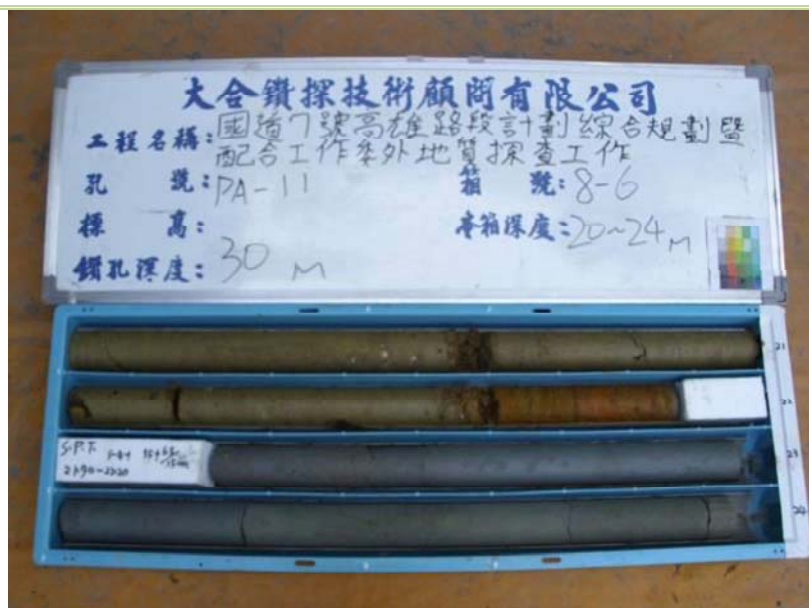 大合鑽探技術顧問有限公司
工程名稱：國道7號高雄路段計劃綜合規劃暨
配合工作委外地質探查工作
孔 號：PA-11 箱 號：8-6
標 高： 本箱深度：20~24M
鑽孔深度：30 M
21
22
S.P.T.
21.90-22.20
23
24